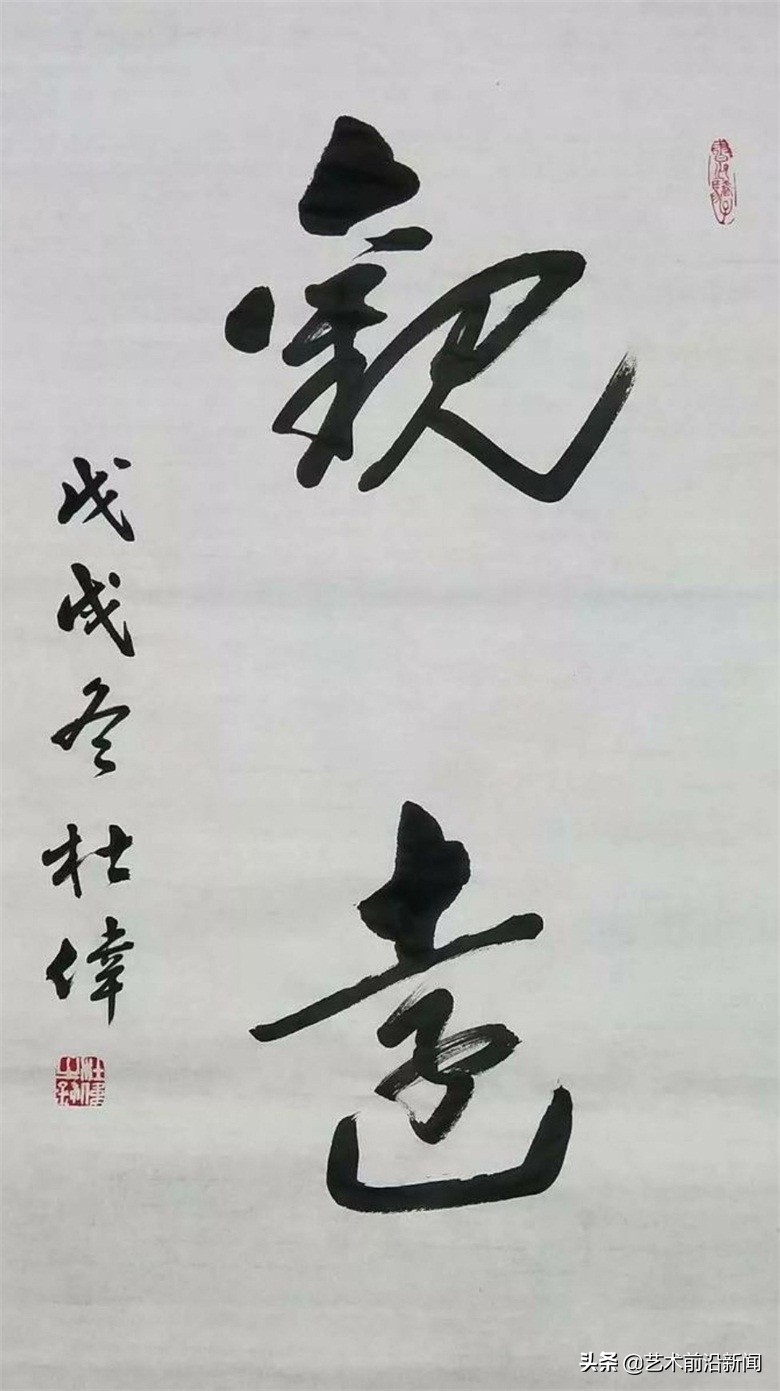 觀遠
戊戌冬 杜偉
头条 @艺术前沿新闻